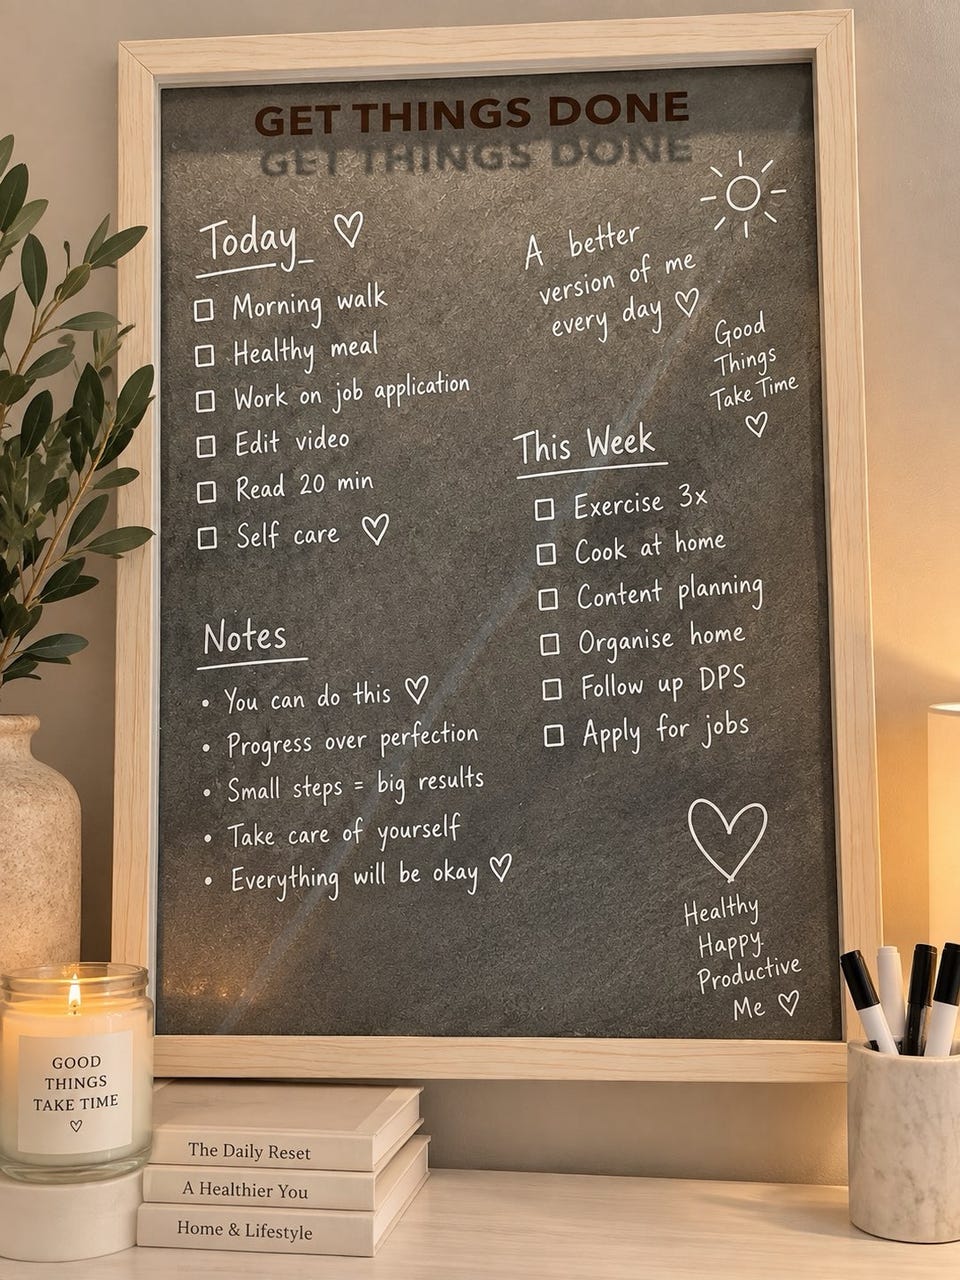 GET THINGS DONE
Today
Morning walk
Healthy meal
Work on job application
Edit video
Read 20 min
Self care
A better
version of me
every day
Good
Things
Take Time
This Week
Exercise 3x
Cook at home
Content planning
Organise home
Follow up DPS
Apply for jobs
Notes
• You can do this
• Progress over perfection
• Small steps = big results
• Take care of yourself
• Everything will be okay
Healthy
Happy
Productive
Me
GOOD
THINGS
TAKE TIME
The Daily Reset
A Healthier You
Home & Lifestyle